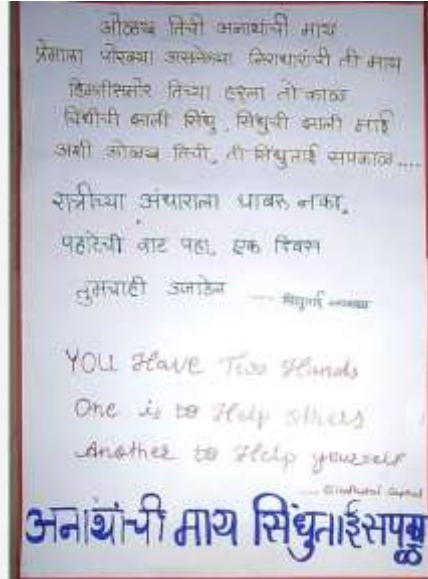 ओळख तिची अनाथांची माय
प्रेमाला पोरक्या असलेल्या निराधारांची ती माय
हिमतीसमोर तिच्या हरला तो काळ
चिंधीची झाली सिंधू, सिंधुची झाली माई
अशी ओळख तिची, ती सिंधुताई सपकाळ....
रात्रीच्या अंधाराला घाबरु नका,
पहाटेची वाट पहा, एक दिवस
तुमचाही उजाडेल
---- सिंधुताई सपकाळ
YOU Have Two Hands
One is to Help others
Another to Help yourself
---- Sindhutai Sapkal
अनाथांची माय सिंधुताई सपकाळ